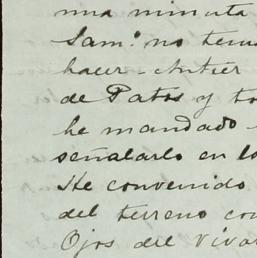 una minuta
Sam.º no tenu
hacer. Antier
de Patos y to
he mandado
señalarlo en lo
He convenido
del terreno con
Ojos del Vivar